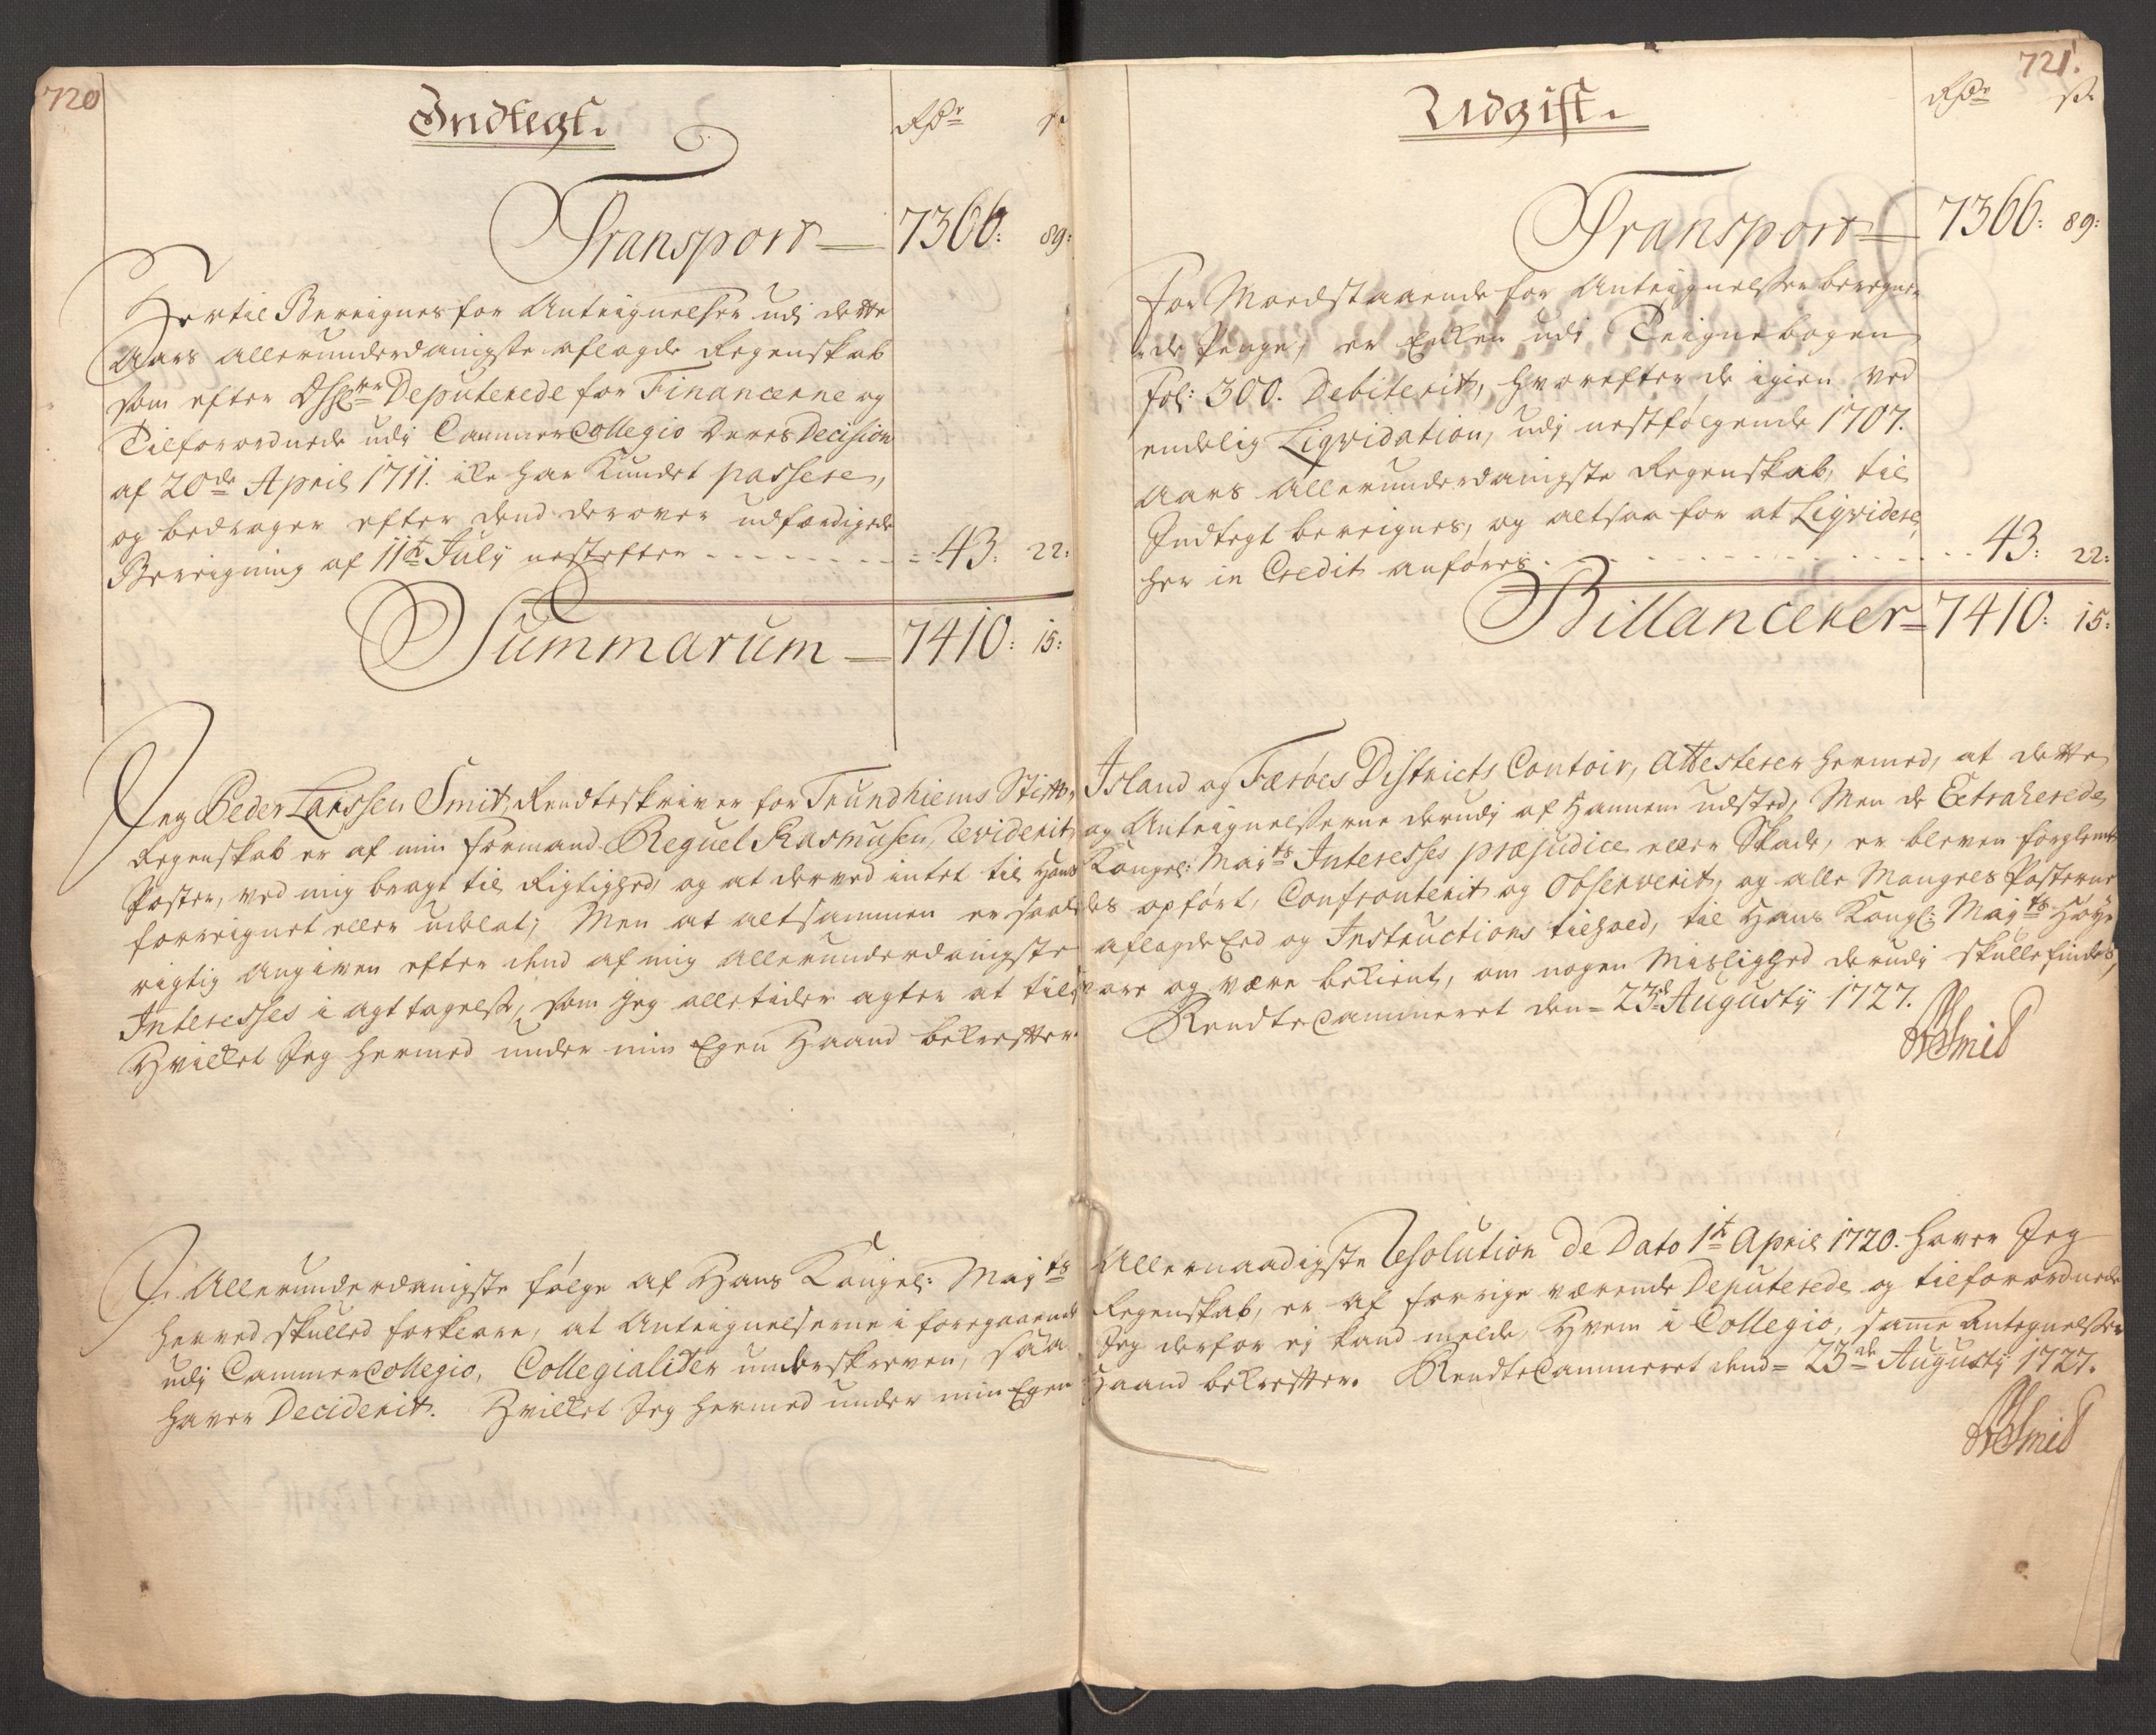 720
Indtegt.
Rdr ß
Transport 7366: 89:
Hertil Bereignes for Anteignelser udi dette
Aars allerunderdanigste aflagde Regenskab
som efter Deputerede for Financerne og
Tilforordnede udj CammerCollegio Deres Decision
af 20de April 1711. ike har Kundet passere,
og bedrager efter dend derover udfærdigede
Bereigning af 11te July nestefter 43: 22:
Summarum 7410: 15:
721.
Udgift.
Rdr ß
Transport 7366: 89:
For Moedstaaende for Anteignelser beregne-
de Penge, er udi Teignebogen
Fol: 300. Debiterit, hvorefter de igien ved
endelig Liqvidation, udj nestfølgende 1707.
Aars Allerunderdanigste Regenskab, til
Indtegt bereignes, og altsaa for at Liqvidere,
her in Credit anføres. 43: 22:
Billancerer 7410: 15:
Jeg Peder Larssen Smit, Rendteskriver for Trundhiems Stift, Island og Færöes Districts Contoir, Attesterer hermed, at dette
Regenskab er af min Formand Reguel Rasmusen, Reviderit, og Anteignelserne derudj af Hannem udsted, Men de Extraherede
Poster, ved mig bragt til Rigtighed, og at derved intet til Hans Kongel: Mayts Interesses præjudice eller Skade, er bleven forglemt,
forreignet eller udelat; Men at altsammen er saaledes opført, Confronterit og Observerit, og alle Mangels Posterne
rigtig Angiven efter dend af mig allerunderdanigste aflagde Eed og Instructions tilhold, til Hans Kongl: Mayts Høye
Interesses i agttagelse, som Jeg alletider agter at tilsvare og være bekient, om nogen Mislighed derudj skulle findes,
Hvilket Jeg hermed under min Egen Haand bekrefter. RendteCammeret den 23de Augusty 1727.
PLSmid
I Allerunderdanigste følge af Hans Kongel: Mayts Allernaadigste Resolution De Dato 1te April 1720. haver Jeg
herved skulled forklare, at Anteignelserne i foregaaende Regenskab, er af forrige værende Deputerede og tilforordnede
udj CammerCollegio, Collegialiter underskreven, saa Jeg derfor ej kand melde, Hvem i Collegio, samme Antegnelser
haver Deciderit. Hvilket Jeg hermed under min Egen Haand bekrefter. RendteCammeret dend 23de Augusty 1727.
PLSmid